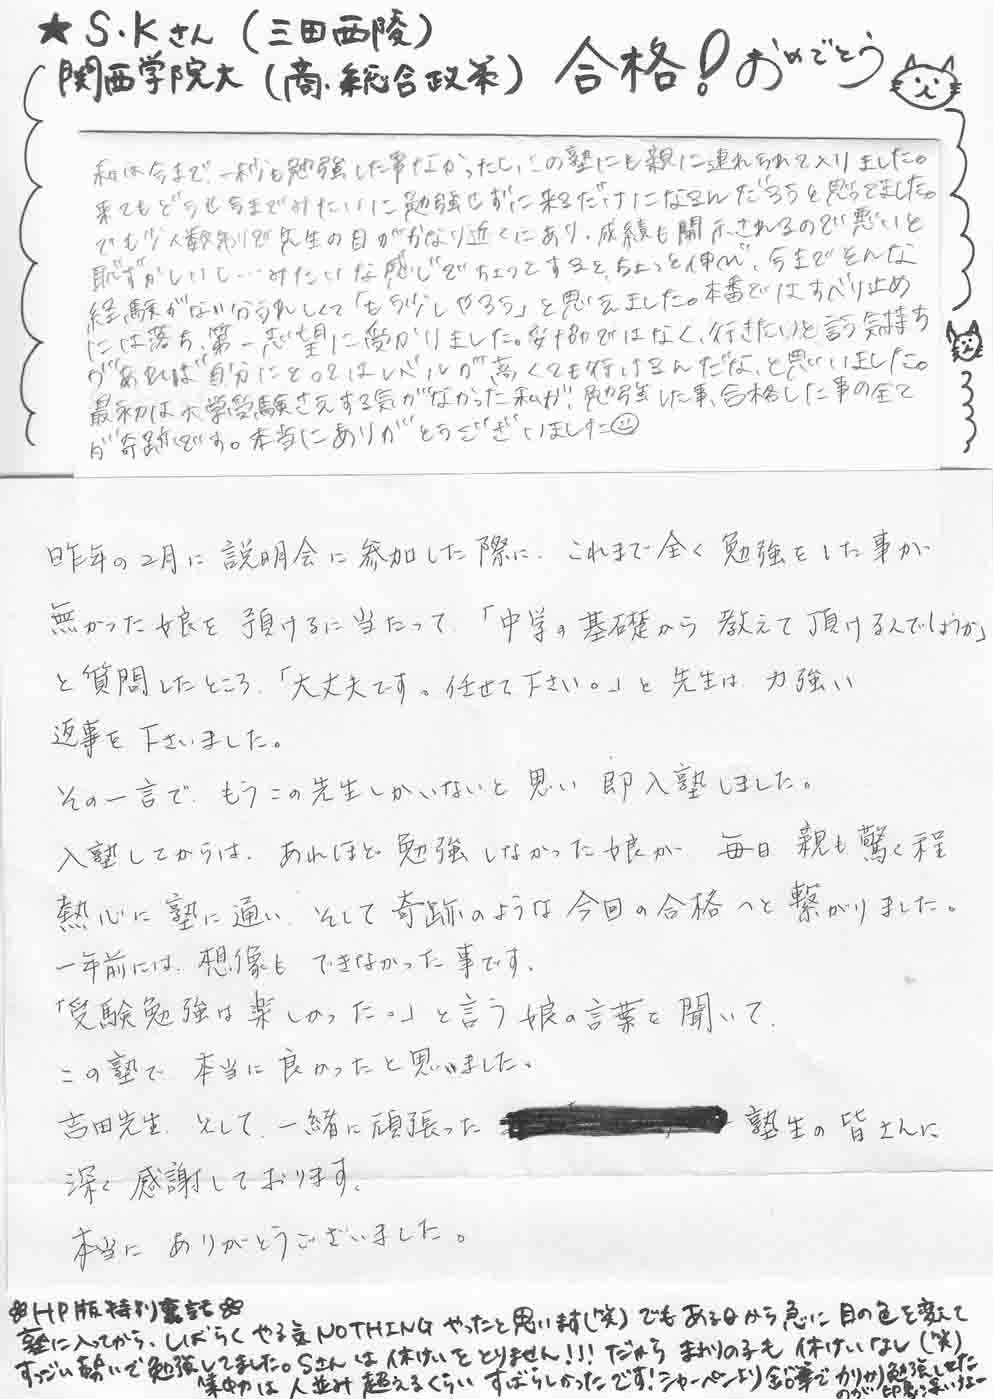 ★ S・Kさん (三田西陵)
関西学院大 (商・総合政策) 合格！おめでとう
私は今まで、一秒も勉強した事なかったし、この塾にも親に連れられて入りました。
来てもどうせ今までみたいに勉強せずに来るだけになるんだろうと思ってました。
でも少人数制で先生の目がかなり近くにあり、成績も開示されるので悪いと
恥ずかしいし…みたいな感じでちょっとすると、ちょっと伸び、今までそんな
経験がない分うれしくて「もう少しやろう」と思えました。本番ではすべり止め
には落ち、第一志望に受かりました。妥協ではなく、行きたいと言う気持ち
があれば自分にとってはレベルが高くても行けるんだな、と思いました。
最初は大学受験さえする気がなかった私が、勉強した事、合格した事の全て
が奇跡です。本当にありがとうございました☺
昨年の2月に説明会に参加した際に、これまで全く勉強をした事が
無かった娘を預けるに当たって、「中学の基礎から教えて頂けるんでしょうか」
と質問したところ、「大丈夫です。任せて下さい。」と先生は力強い
返事を下さいました。
その一言で、もうこの先生しかいないと思い即入塾しました。
入塾してからは、あれほど勉強しなかった娘が、毎日親も驚く程
熱心に塾に通い、そして奇跡のような今回の合格へと繋がりました。
一年前には、想像もできなかった事です。
「受験勉強は楽しかった。」と言う娘の言葉を聞いて、
この塾で本当に良かったと思いました。
吉田先生、そして、一緒に頑張った 塾生の皆さんに
深く感謝しております。
本当にありがとうございました。
HP版特別裏話
塾に入ってから、しばらくやる気NOTHINGやったと思います(笑) でもある日から急に目の色を変えて
すっごい勢いで勉強してました。Sさんは休けいをとりません!!! だからまわりの子も休けいなし(笑)
集中力は人並み超えるくらいすばらしかったです! シャーペンより鉛筆でカリカリ勉強してた
のが印象深いけぇー